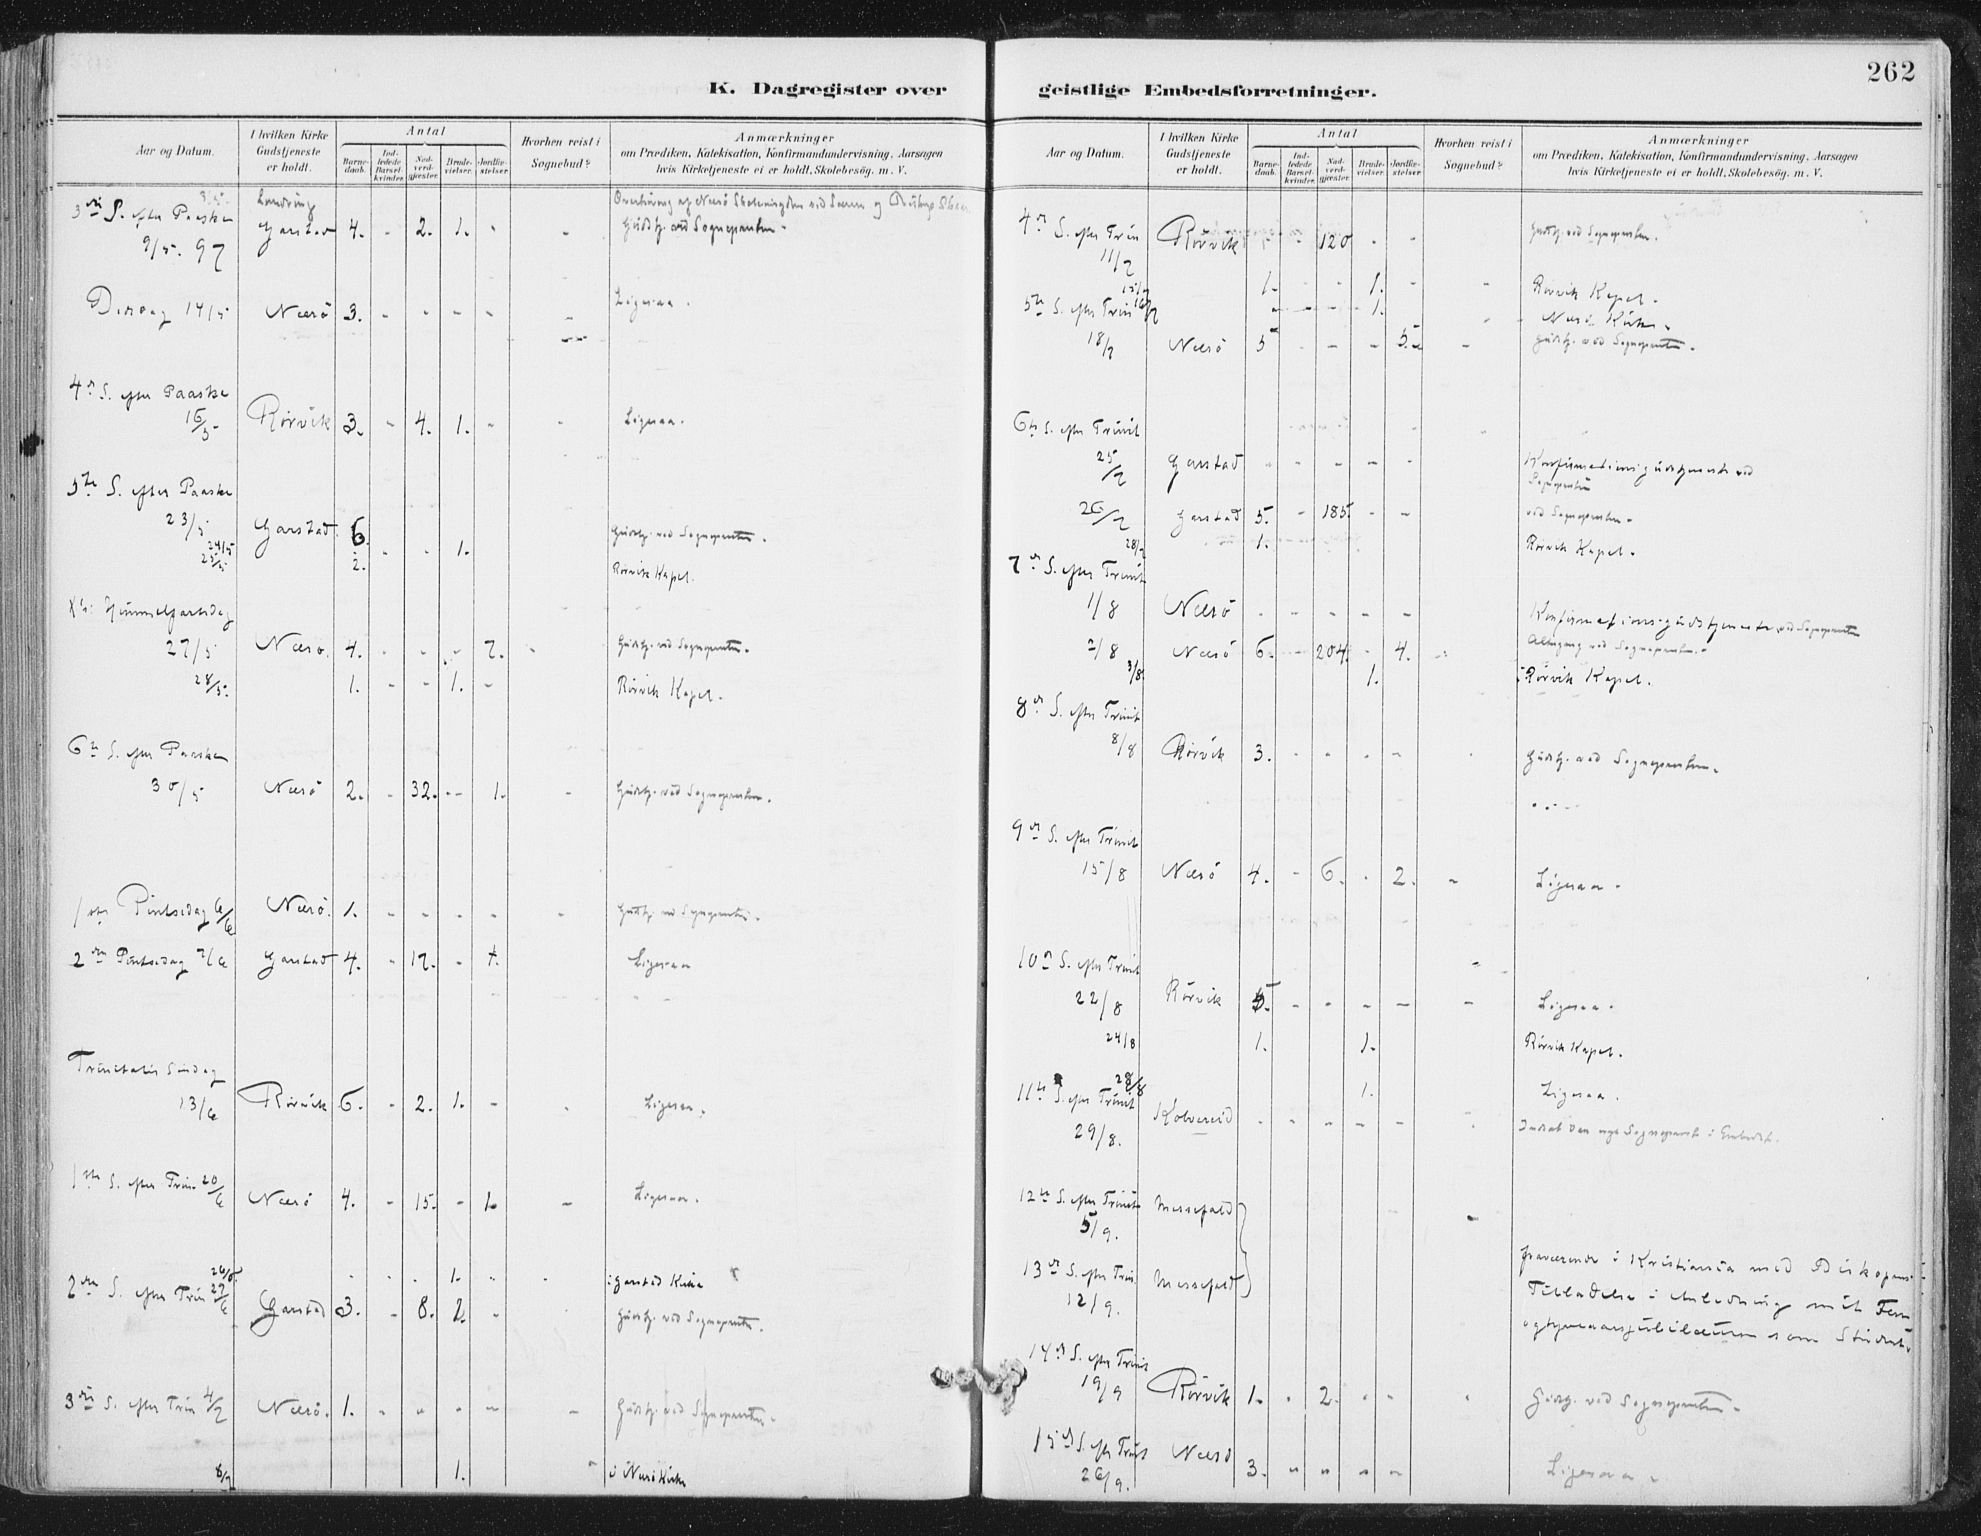 262
K. Dagregister over
Aar og Datum.
I hvilken Kirke Gudstjeneste er holdt.
Antal
Barnedaab.
Indledede Barselkvinder.
Nadverdgjæster.
Brudevielser.
Jordfæstelser.
Hvorhen reist i Sognebud?
Anmærkninger
om Prædiken, Katekisation, Konfirmandundervisning, Aarsagen
hvis Kirketjeneste ei er holdt, Skolebesøg. m. V.
3die S. efter Paaske
9/5. 97 Garstad 4. - 2. 1. - - Gudstj. ved Sognepresten.
14/5 Nærö 3. - - - - Ligesaa.
4de S. efter Paaske
16/5 Rörvik 3. - 4. 1. - - Ligesaa.
5te S. efter Paaske
23/5 Garstad 6. - - 1. Gudstj. ved Sognepresten.
24/5
25/5 2. Rörvik Kapel.
Himmelfartsdag
27/5 Nærö. 4. - - - 7. - Gudstj. ved Sognepresten.
28/5. 1. - - 1. - Rörvik Kapel.
6te S. efter Paaske
30/5 Nærö 2. - 32. - 1. - Gudstj. ved Sognepresten.
1ste Pintsedag 6/6 Nærö. 1. - - - - - Gudstj. ved Sognepresten.
2den Pintsedag 7/6 Garstad 4. - 17. - Ligesaa
Trinitatis Søndag
13/6 Rörvik 6. - 2. 1. - - Ligesaa.
1ste S. efter Trin 20/6 Nærö 4. - 15. - 1. - Ligesaa.
26/6 - - - 1. - - i Garstad Kirke
2den S. efter Trin 27/6 Garstad 3. - 8. 2. - Gudstj. ved Sognepresten.
3die S. efter Trin 4/7 Nærö. 1. - - - - - Gudstj. ved Sognepresten.
8/7 1. - i Nærö Kirke
geistlige Embedsforretninger.
Aar og Datum.
I hvilken Kirke Gudstjeneste er holdt.
Antal
Barnedaab.
Indledede Barselkvinder.
Nadverdgjæster.
Brudevielser.
Jordfæstelser.
Hvorhen reist i Sognebud?
Anmærkninger
om Prædiken, Katekisation, Konfirmandundervisning, Aarsagen
hvis Kirketjeneste ei er holdt, Skolebesøg. m. V.
4de S. efter Trin
11/7 Rörvik - - 120 - - Gudstj. ved Sognepresten.
15/7 1. - - 1. - - Rörvik Kapel.
5te S. efter Trin 16/7 - - - 1. - Nærö Kirke.
18/7 Nærö 5 - - - 5. - Gudstj. ved Sognepresten.
6te S. efter Trinit
25/7 Garstad - - - - - Konfirmationsgudstjeneste ved
Sognepresten
26/7 Garstad 5. - 185. - - ved Sognepresten.
28/7 1. Rörvik Kapel.
7de S. efter Trinit
1/8 Nærö - - - - - Konfirmationsgudstjeneste ved Sognepresten
2/8 Nærö 6. - 204. - 4. - Altergang ved Sognepresten.
3/8. 1. Rörvik Kapel.
8de S. efter Trinit
8/8 Rörvik 3. - - - - - Gudstj. ved Sognepresten.
9de S. efter Trinit
15/8 Nærö 4. - 6. - 2. - Ligesaa.
10de S. efter Trinit
22/8 Rörvik 5. - - - - - Ligesaa.
24/8 1. 1. Rörvik Kapel.
28/8 1. Ligesaa.
11te S. efter Trinit
29/8. Kolvereid - - - - - - Indsat den nye Sogneprest i Embedet.
12te S. efter Trinit
5/9. Messefald
13de S. efter Trin.
12/9. Messefald
fraværende i Kristiania med Biskopens
Tilladelse i Anledning mit Fem
ogtyveaarsjubilæum som Student.
14de S. efter Trinit
19/9 Rörvik 1. - 2. - - - Gudstj. ved Sognepresten.
15de S. efter Trinit
26/9. Nærö 3. - - - - Ligesaa.